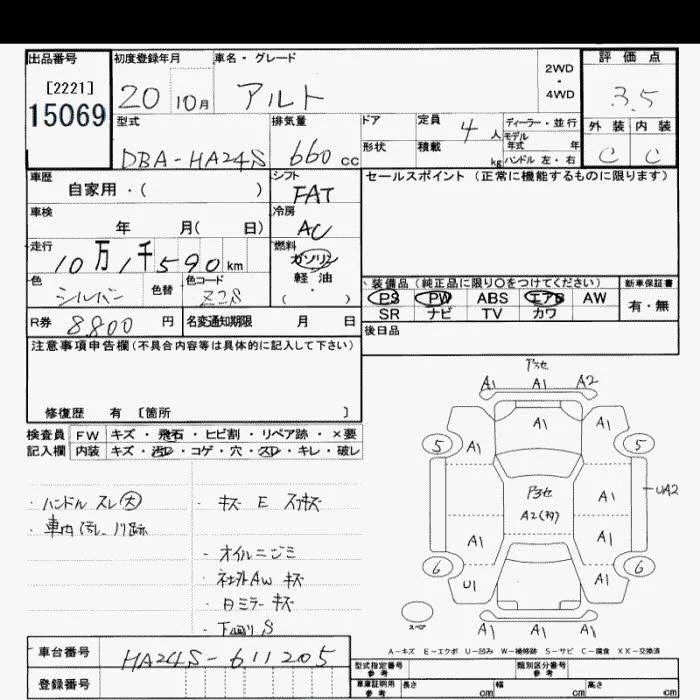 出品番号
[2221]
15069
初度登録年月
20 10月
車名・グレード
アルト
2WD
・
4WD
評価点
3.5
外装 内装
C C
型式
DBA-HA24S
排気量
660 cc
ドア
形状
定員 4 人
積載 kg
ディーラー・並行
モデル
年式 年
ハンドル 左・右
車歴
自家用・( )
シフト
FAT
セールスポイント (正常に機能するものに限ります)
車検
年 月( 日)
冷房
AC
走行
10万1千590 km
燃料
ガソリン
軽・油
( ・ )
色
シルバー
色替
色コード
Z2S
装備品 (純正品に限り○をつけてください)
PS PW ABS エアB AW
SR ナビ TV カワ
新車保証書
有・無
R券 8,800 円
名変通知期限 月 日
後日品
注意事項申告欄(不具合内容等は具体的に記入して下さい)
修復歴 有 〔箇所 〕
検査員
記入欄
FW キズ・飛石・ヒビ割・リペア跡・×要
内装 キズ・汚れ・コゲ・穴・スレ・キレ・破レ
・ハンドル スレ 大
・車内 汚レ
・キズ E
・オイルニジミ
・社外AW キズ
・ミラー キズ
・下廻り S
A1 A1 A2
5 A1 A1 A1 5
A1 UA2
A1 A1
6 U1 A1 6
A1 A1 A1
スペア
A-キズ E-エクボ U-凹み W-補修跡 S-サビ C-腐食 XX-交換済
車台番号
HA24S-611205
登録番号
型式指定番号
参考
類別区分番号
参考
車庫証明用
参考
長さ cm
幅 cm
高さ cm